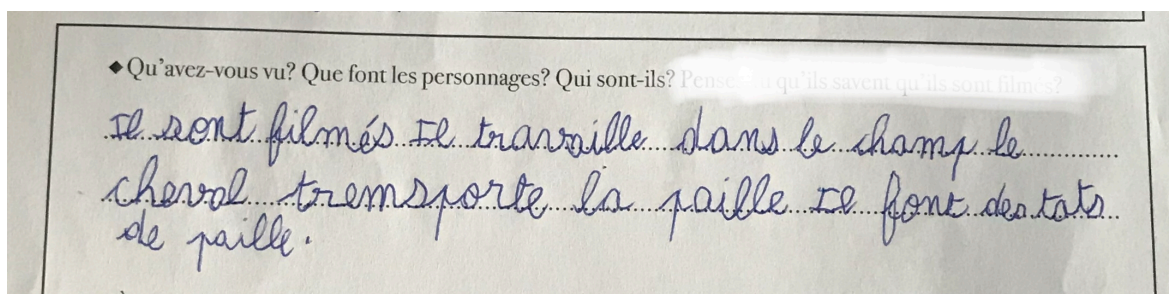 ◆ Qu'avez-vous vu? Que font les personnages? Qui sont-ils? Pensez-vous qu'ils savent qu'ils sont filmés?
Il sont filmés Il travaille dans le champ le
cheval tremsporte la paille Il font des tats
de paille.